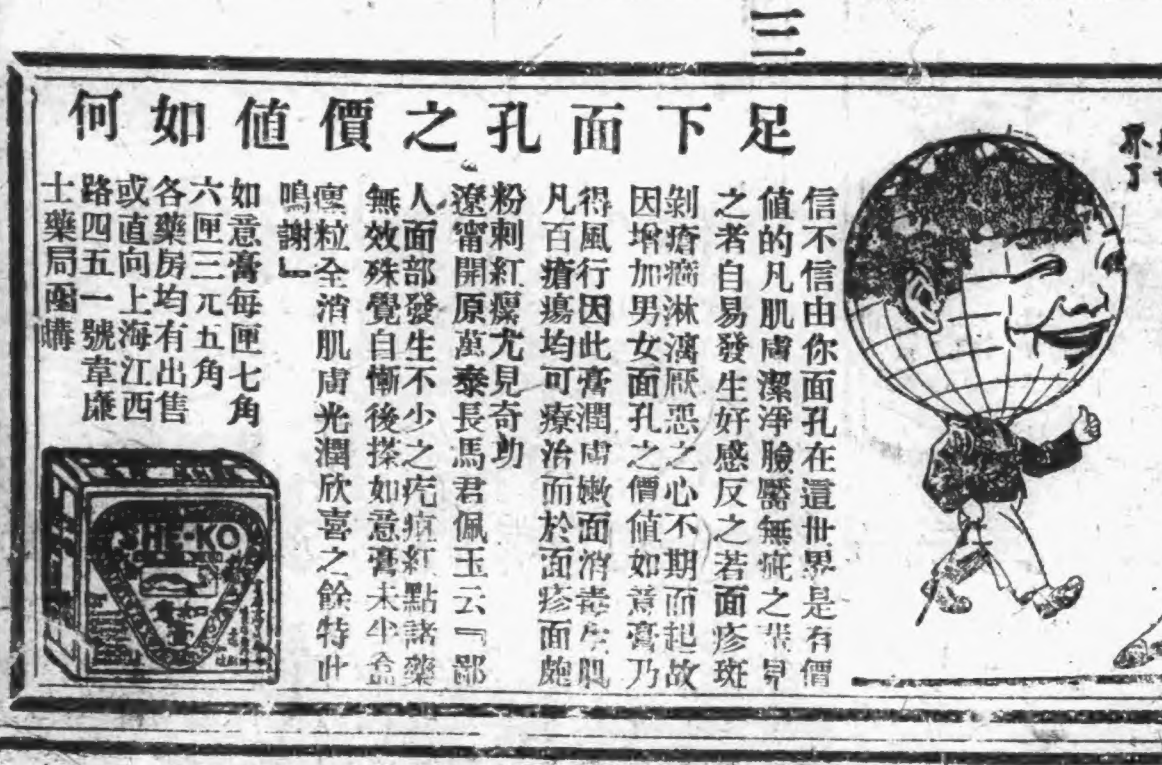 三
足下面孔之價值如何
信不信由你面孔在這世界是有價
值的凡肌膚潔淨臉靨無疵之輩見
之者自易發生好感反之若面疹斑
剝瘡癤淋漓厭惡之心不期而起故
因增加男女面孔之價值如意膏乃
得風行因此膏潤膚嫩面消毒生肌
凡百瘡瘍均可療治而於面疹面皰
粉刺紅瘰尤見奇功
遼甯開原萬泰長馬君佩玉云『鄙
人面部發生不少之疙疸紅點諸藥
無效殊覺自慚後搽如意膏未半盒
瘰粒全消肌膚光潤欣喜之餘特此
鳴謝』
如意膏每匣七角
六匣三元五角
各藥房均有出售
或直向上海江西
路四五一號韋廉
士藥局函購
SHE-KO
如意膏